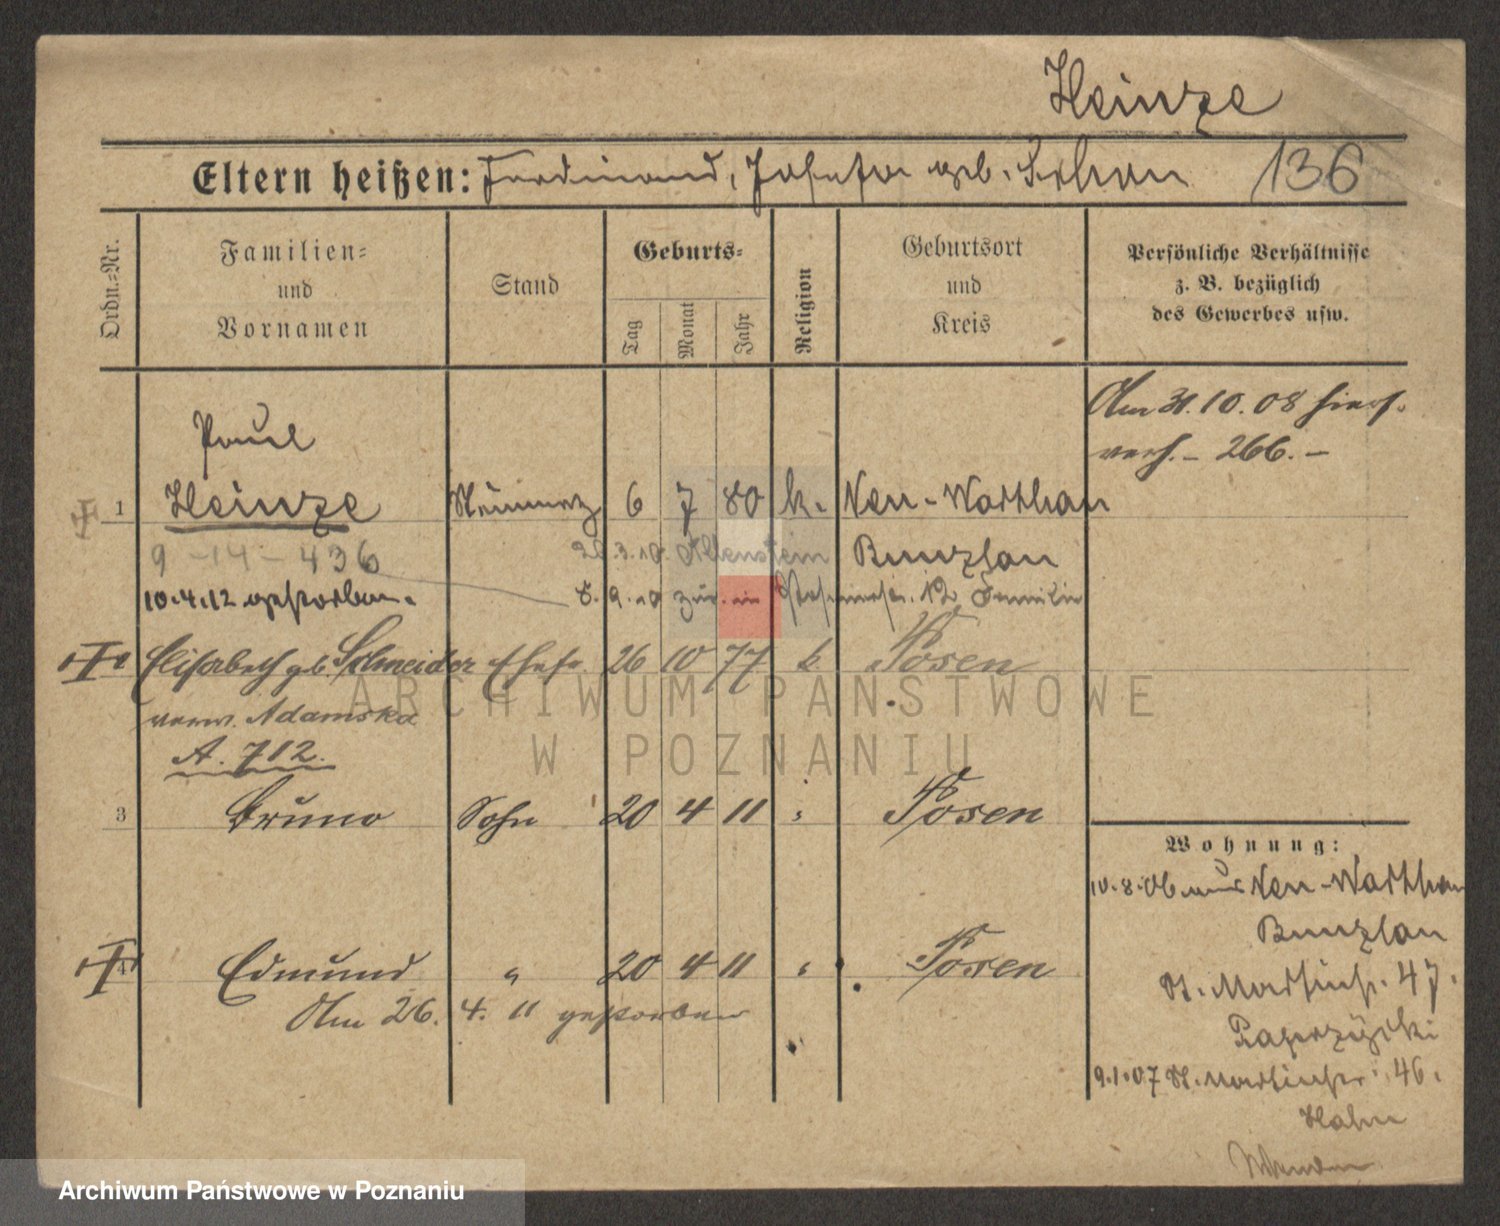 Heinze
Eltern heißen: Ferdinand, Josefa geb. Schon 136
Ordn.-Nr.
Familien-
und
Vornamen
Stand
Geburts-
Tag
Monat
Jahr
Religion
Geburtsort
und
Kreis
Persönliche Verhältnisse
z. B. bezüglich
des Gewerbes usw.
Am 31.10.08 hier
verh. – 266. –
Paul
1 Heinze Steinmetz 6 7 80 k. Neu-Warthau
9 – 14 – 436 20.3.10. Allenstein Bunzlau
10.4.12 gestorben. 8.9.10 zur. in 12 Familie
Elisabeth gb. Schneider Ehefr. 26 10 77 k. Posen
verw. Adamska
A. 712.
3 Bruno Sohn 20 4 11 " Posen
4 Edmund " 20 4 11 " Posen
Am 26. 4. 11 gestorben
Wohnung:
10.8.06 aus Neu-Warthau
Bunzlau
St. Martinstr. 47.
9.1.07 St. Martinstr. 46.
Hahn
ARCHIWUM PAŃSTWOWE
W POZNANIU
Archiwum Państwowe w Poznaniu